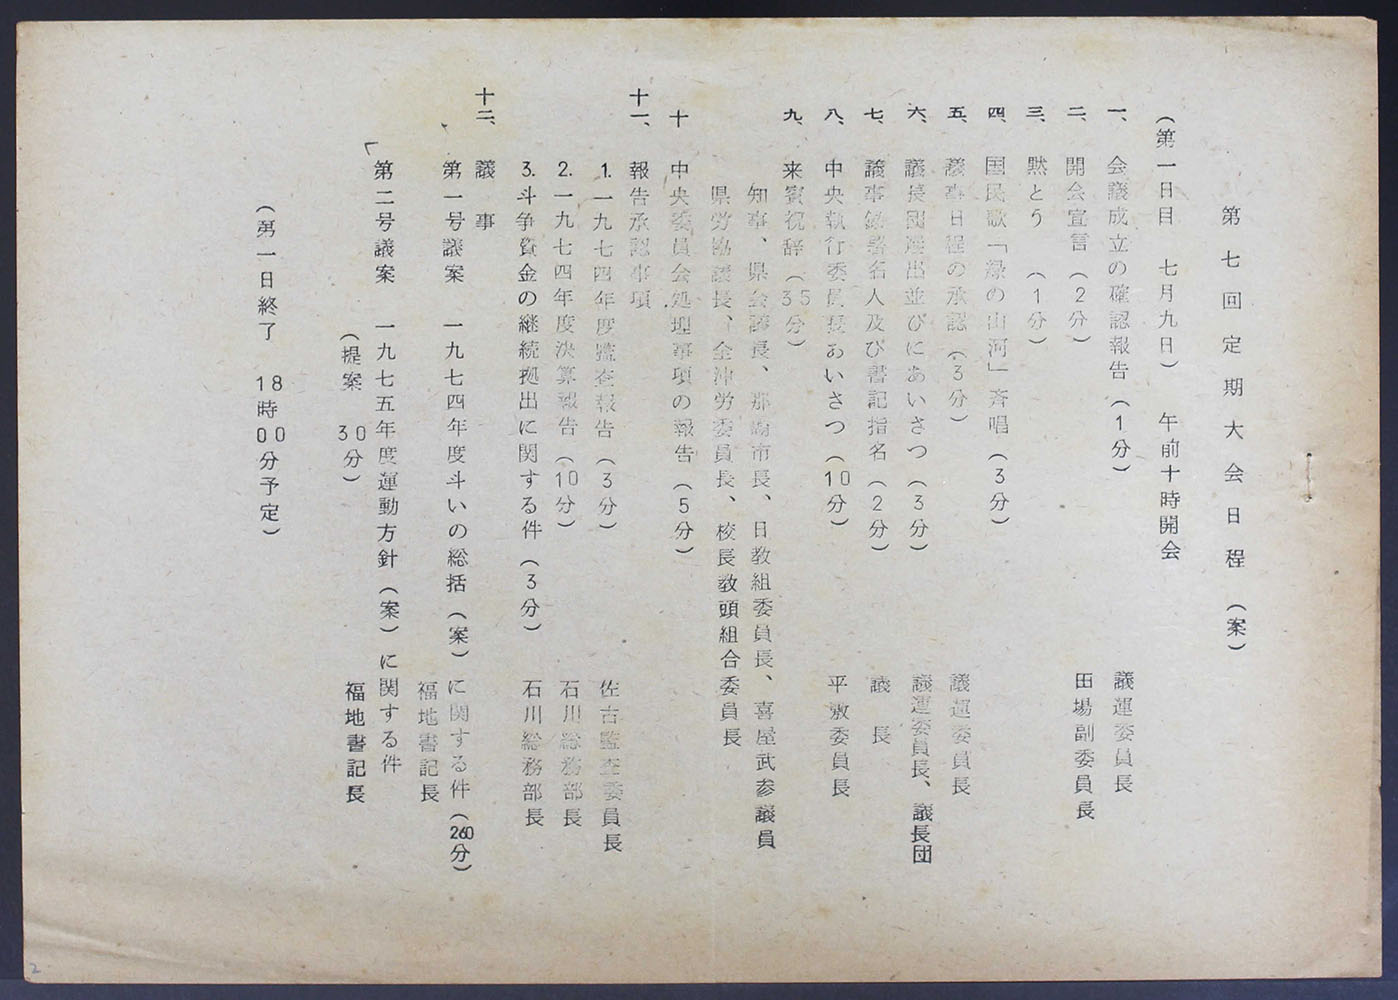 第七回定期大会日程（案）
（第一日目　七月九日）　午前十時開会
一、会議成立の確認報告（1分）　議運委員長
二、開会宣言（2分）　田場副委員長
三、黙とう（1分）
四、国民歌「緑の山河」斉唱（3分）
五、議事日程の承認（3分）　議運委員長
六、議長団選出並びにあいさつ（3分）　議運委員長、議長団
七、議事録署名人及び書記指名（2分）　議長
八、中央執行委員長あいさつ（10分）　平敷委員長
九、来賓祝辞（35分）
知事、県会議長、那覇市長、日教組委員長、喜屋武参議員
県労協議長、全沖労委員長、校長教頭組合委員長
十　中央委員会処理事項の報告（5分）
十一、報告承認事項
1.一九七四年度監査報告（3分）　佐古監査委員長
2.一九七四年度決算報告（10分）　石川総務部長
3.斗争資金の継続拠出に関する件（3分）　石川総務部長
十二、議事
第一号議案　一九七四年度斗いの総括（案）に関する件（260分）
福地書記長
第二号議案　一九七五年度運動方針（案）に関する件
（提案　30分）　福地書記長
（第一日終了　18時00分予定）
2